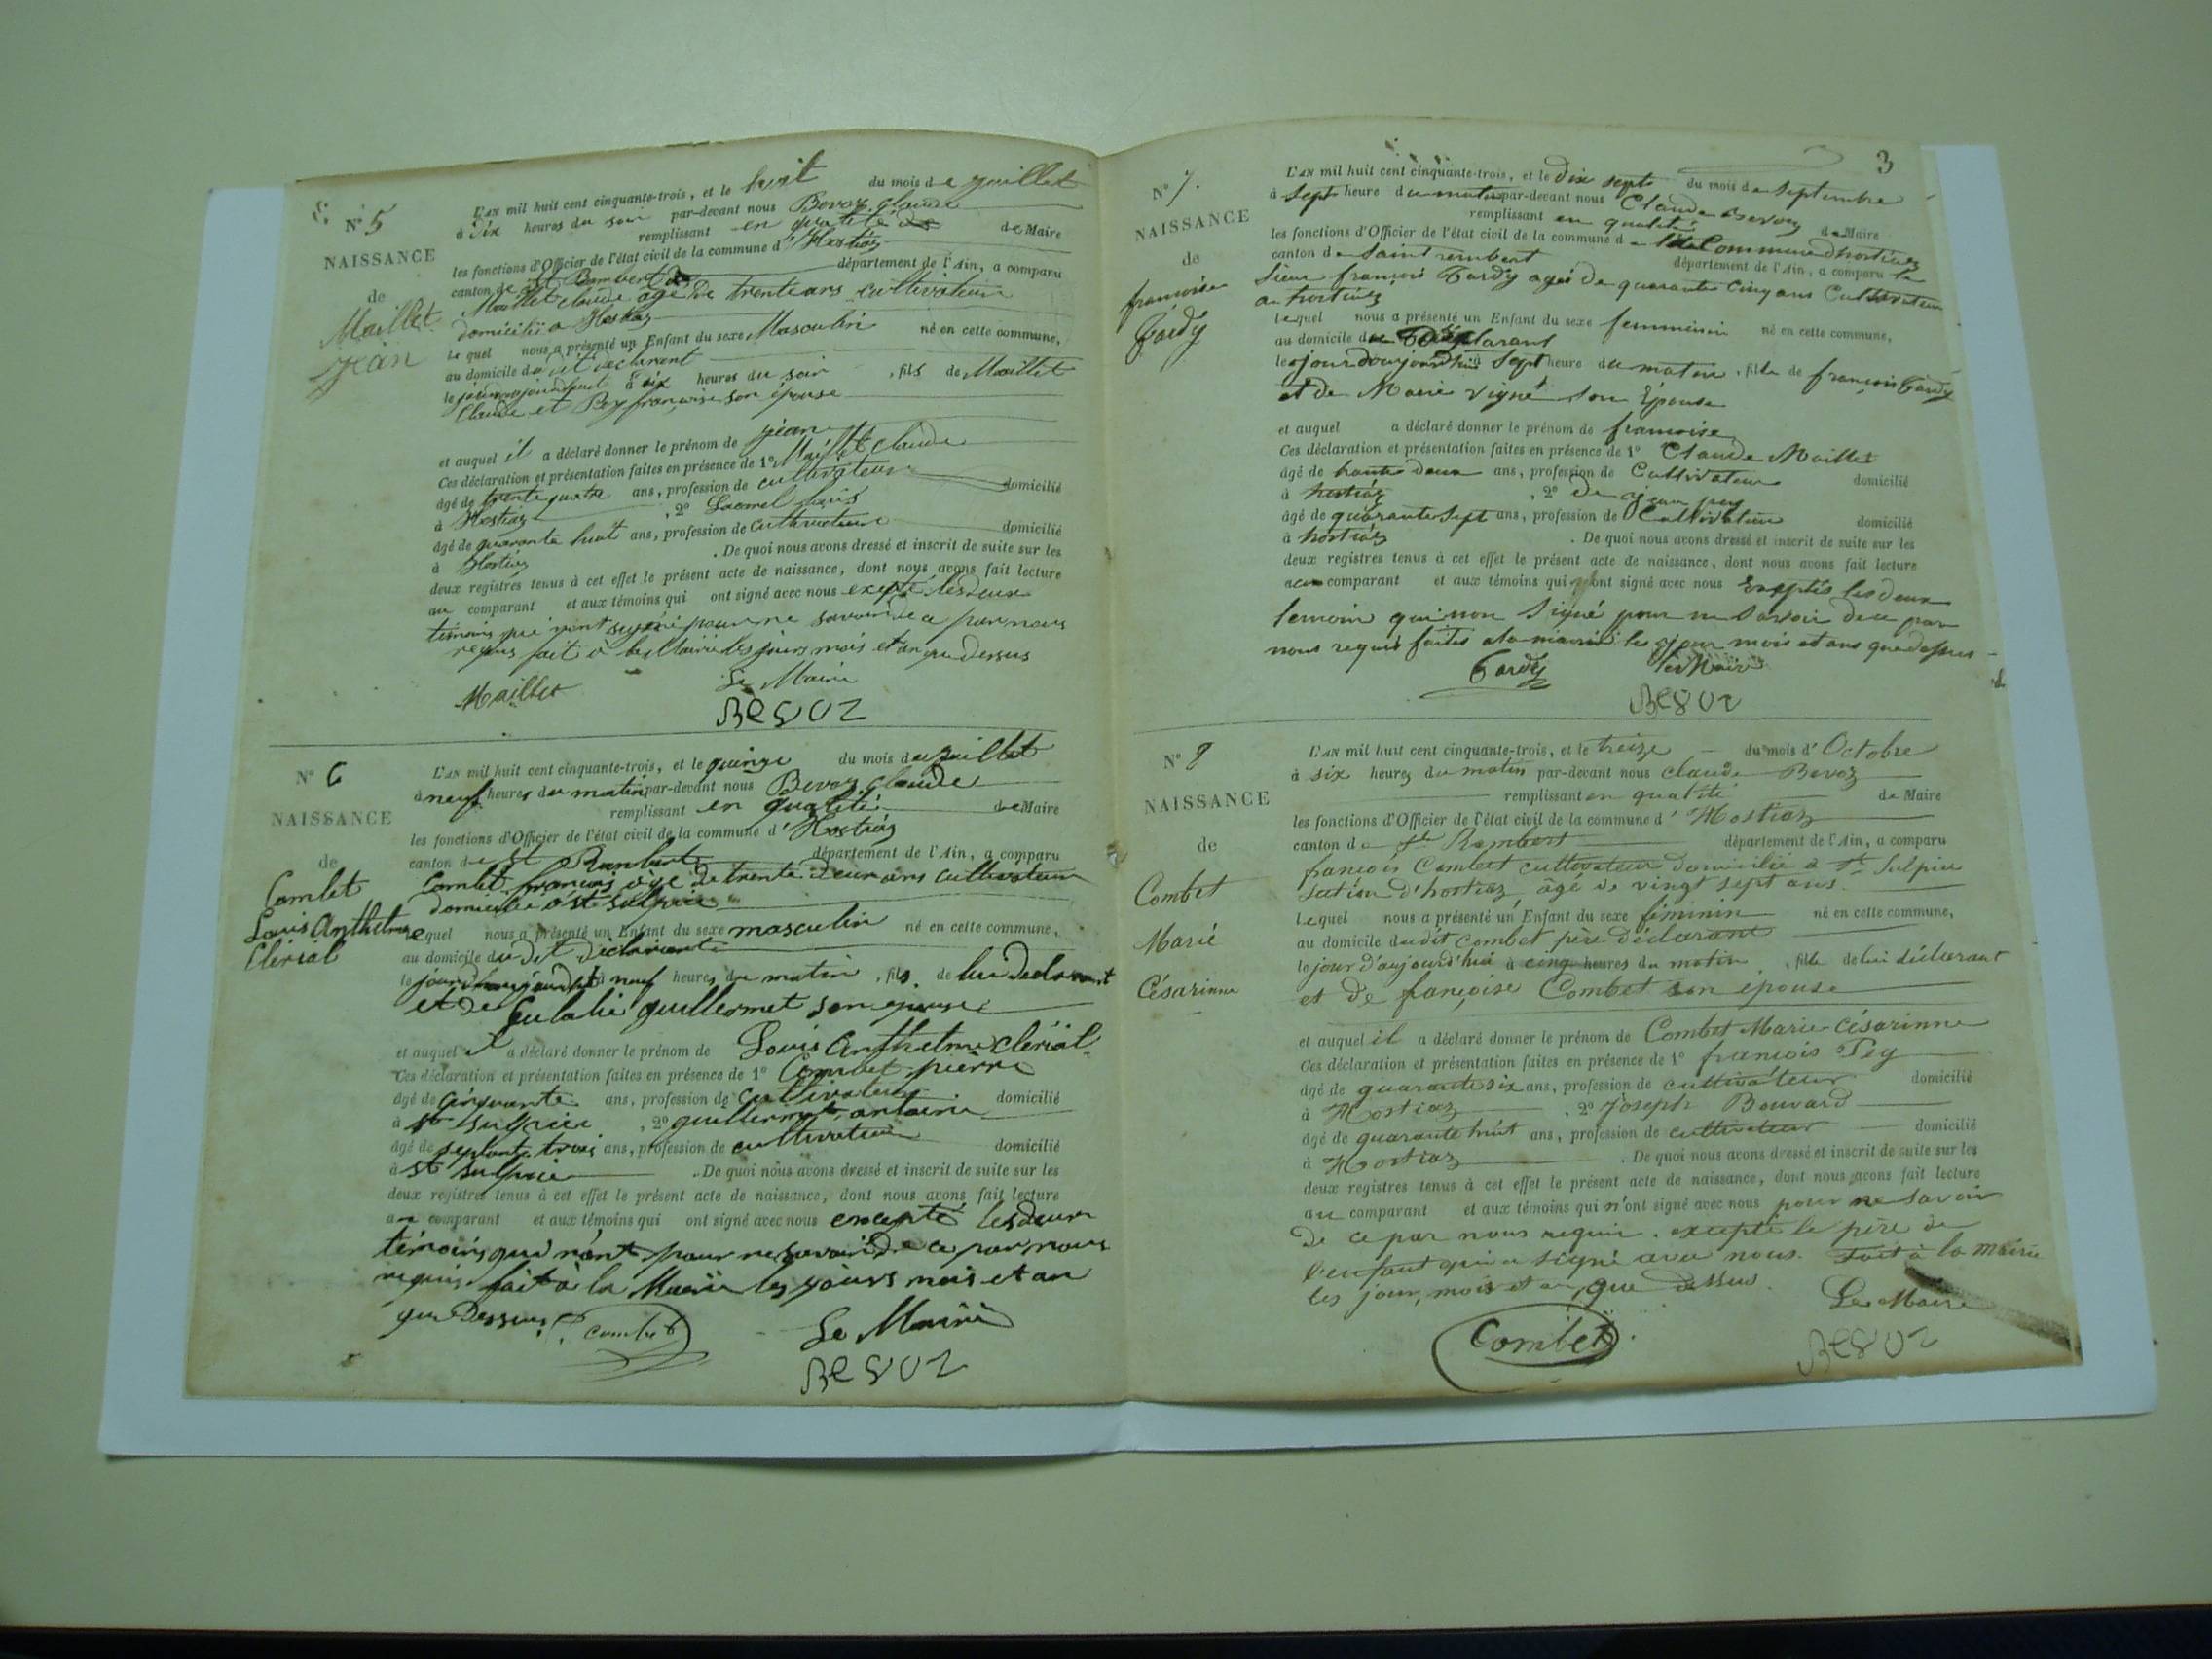 N° 5
NAISSANCE
de
Maillet
Jean
L'AN mil huit cent cinquante-trois, et le huit du mois de juillet
à Dix heures du soir par-devant nous Bevoz Claude
remplissant en qualité de Maire
les fonctions d'Officier de l'état civil de la commune d'Hostiaz
canton de St Rambert département de l'Ain, a comparu
Maillet Claude âgé de trente ans cultivateur
domicilié a Hostiaz
le quel nous a présenté un Enfant du sexe Masculin né en cette commune,
au domicile du dit déclarant
heures du soir, fils de Maillet
Claude et Pey françoise son épouse
et auquel il a déclaré donner le prénom de jean
Ces déclaration et présentation faites en présence de 1° Maillet Claude
âgé de trente quatre ans, profession de cultivateur domicilié
à Hostiaz, 2° Louis
âgé de quarante huit ans, profession de Cultivateur domicilié
à Hostiaz. De quoi nous avons dressé et inscrit de suite sur les
deux registres tenus à cet effet le présent acte de naissance, dont nous avons fait lecture
au comparant et aux témoins qui ont signé avec nous excepté les deux
témoins qui n'ont signé pour ne savoir de ce par nous
requis fait à la Mairie les jours mois et an que dessus
Maillet Le Maire
BEVOZ
N° 6
NAISSANCE
de
Combet
Louis Anthelme
Clérial
L'AN mil huit cent cinquante-trois, et le quinze du mois de juillet
à neuf heures du matin par-devant nous Bevoz Claude
remplissant en qualité de Maire
les fonctions d'Officier de l'état civil de la commune d'Hostiaz
canton de St Rambert département de l'Ain, a comparu
Combet françois âgé de trente deux ans cultivateur
domicilié à St Sulpice
lequel nous a présenté un Enfant du sexe masculin né en cette commune,
au domicile du dit déclarant
le jourd'aujourd'hui à neuf heures du matin, fils de lui declarant
et de Eulalie guillermet son épouse
et auquel il a déclaré donner le prénom de Louis Anthelme Clérial
Ces déclaration et présentation faites en présence de 1° Combet pierre
âgé de cinquante ans, profession de cultivateur domicilié
à St Sulpice, 2° guillermet antoine
âgé de septante trois ans, profession de cultivateur domicilié
à St Sulpice. De quoi nous avons dressé et inscrit de suite sur les
deux registres tenus à cet effet le présent acte de naissance, dont nous avons fait lecture
au comparant et aux témoins qui ont signé avec nous excepté les deux
témoins qui n'ont pour ne savoir de ce par nous
requis fait à la Mairie les jours mois et an
que Dessus. combet Le Maire
BEVOZ
3
N° 7.
NAISSANCE
de
françoise
Tardy
L'AN mil huit cent cinquante-trois, et le dix sept du mois de septembre
à sept heure du matin par-devant nous Claude Bevoz
remplissant en qualité de Maire
les fonctions d'Officier de l'état civil de la commune d'hostiaz
canton de Saint rembert département de l'Ain, a comparu le
sieur françois Tardy agé de quarante cinq ans Cultivateur
a hostiaz
lequel nous a présenté un Enfant du sexe femminin né en cette commune,
au domicile du
le jour d'aujourd'hui à sept heure du matin, fille de françois Tardy
et de Marie vigne son Épouse
et auquel a déclaré donner le prénom de francoise
Ces déclaration et présentation faites en présence de 1° Claude Maillet
âgé de trante deux ans, profession de Cultivateur domicilié
à hostiaz, 2° de jean pey
âgé de quarante sept ans, profession de Cultivateur domicilié
à hostiaz. De quoi nous avons dressé et inscrit de suite sur les
deux registres tenus à cet effet le présent acte de naissance, dont nous avons fait lecture
au comparant et aux témoins qui ont signé avec nous Exeptés les deux
temoin qui non signé pour ne savoir de ce par
nous requis faites a la mairie les jour mois et ans que dessus
Tardy le Maire
BEVOZ
N° 8
NAISSANCE
de
Combet
Marié
Césarinne
L'AN mil huit cent cinquante-trois, et le treize du mois d'Octobre
à six heures du matin par-devant nous claude Bevoz
remplissant en qualité de Maire
les fonctions d'Officier de l'état civil de la commune d'Hostiaz
canton de St Rambert département de l'Ain, a comparu
françois Combet cultivateur domicilié à St Sulpice
section d'hostiaz, âgé de vingt sept ans.
Lequel nous a présenté un Enfant du sexe féminin né en cette commune,
au domicile dudit Combet père déclarant
le jour d'aujourd'hui à cinq heures du matin, fille de lui déclarant
et de françoise Combet son épouse
et auquel il a déclaré donner le prénom de Combet Marie Césarinne
Ces déclaration et présentation faites en présence de 1° françois Pey
âgé de quarante six ans, profession de cultivateur domicilié
à Hostiaz, 2° Joseph Bouvard
âgé de quarante huit ans, profession de cultivateur domicilié
à Hostiaz. De quoi nous avons dressé et inscrit de suite sur les
deux registres tenus à cet effet le présent acte de naissance, dont nous avons fait lecture
au comparant et aux témoins qui n'ont signé avec nous pour ne savoir
de ce par nous requis. excepté le père de
l'enfant qui a signé avec nous. Fait à la mairie
les jour, mois et an, que dessus.
Combet Le Maire
BEVOZ